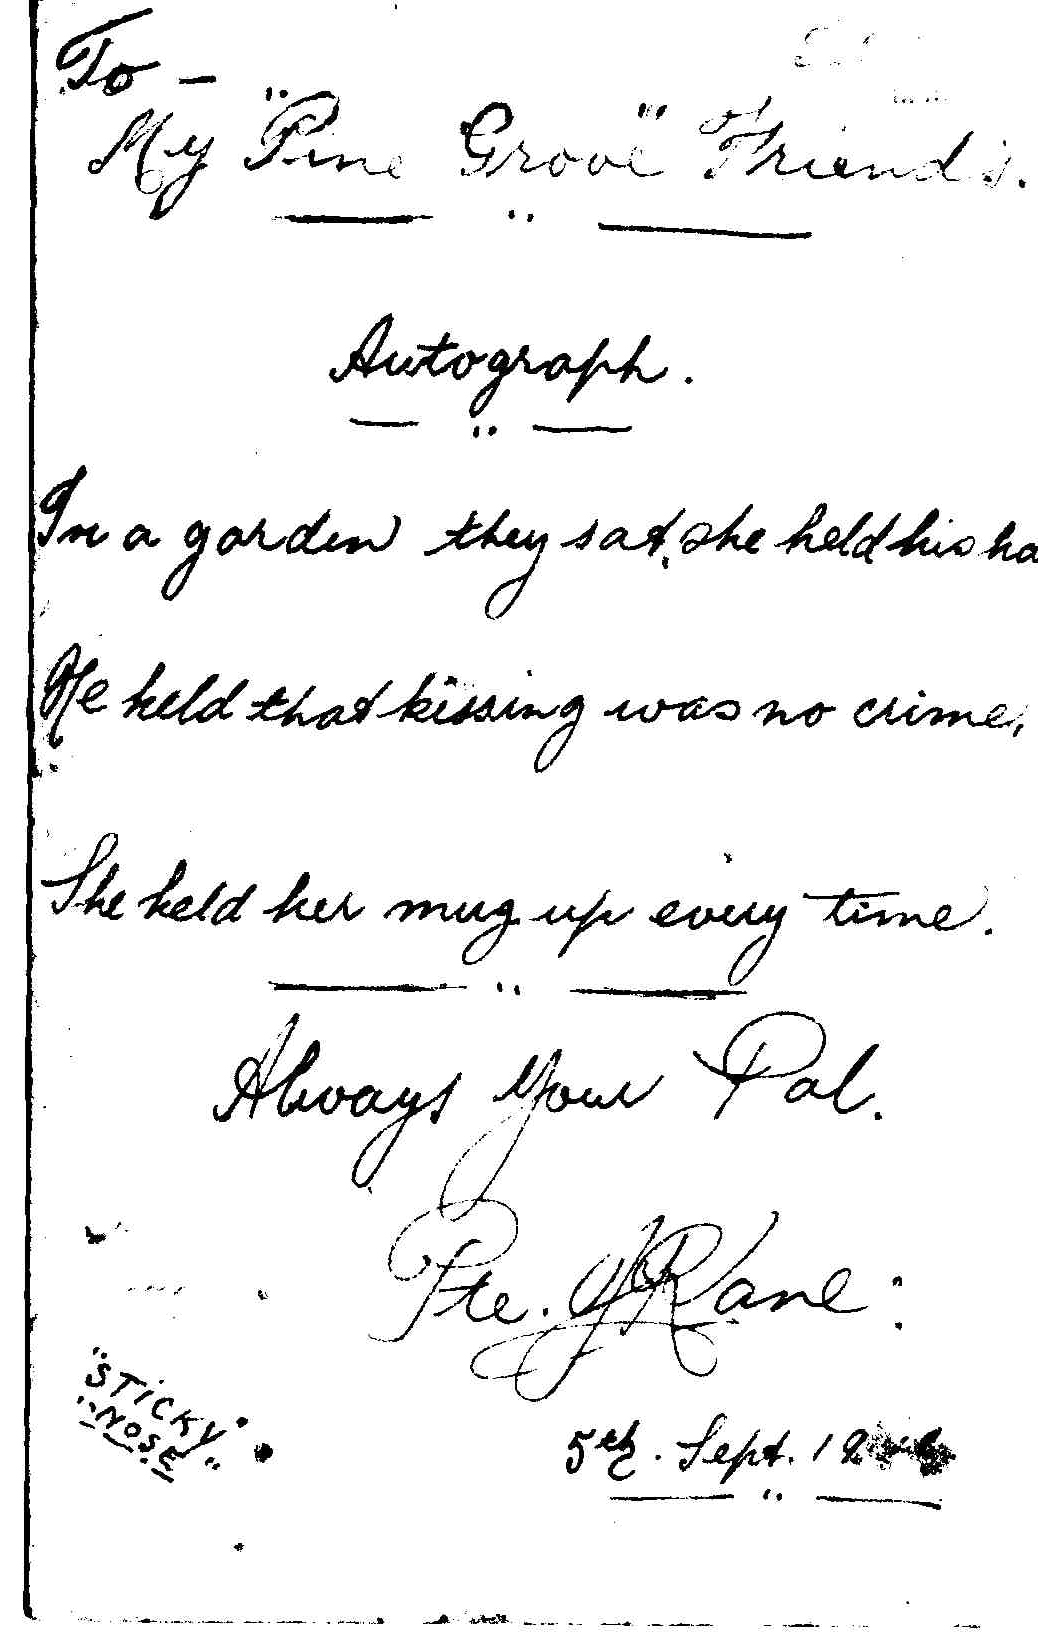 To -
My "Pine Grove" Friends.
Autograph.
In a garden they sat, she held his ha
He held that kissing was no crime,
She held her mug up every time.
Always Your Pal.
Pte. Kane:
"STICKY"
"NOSE"
5th. Sept. 19